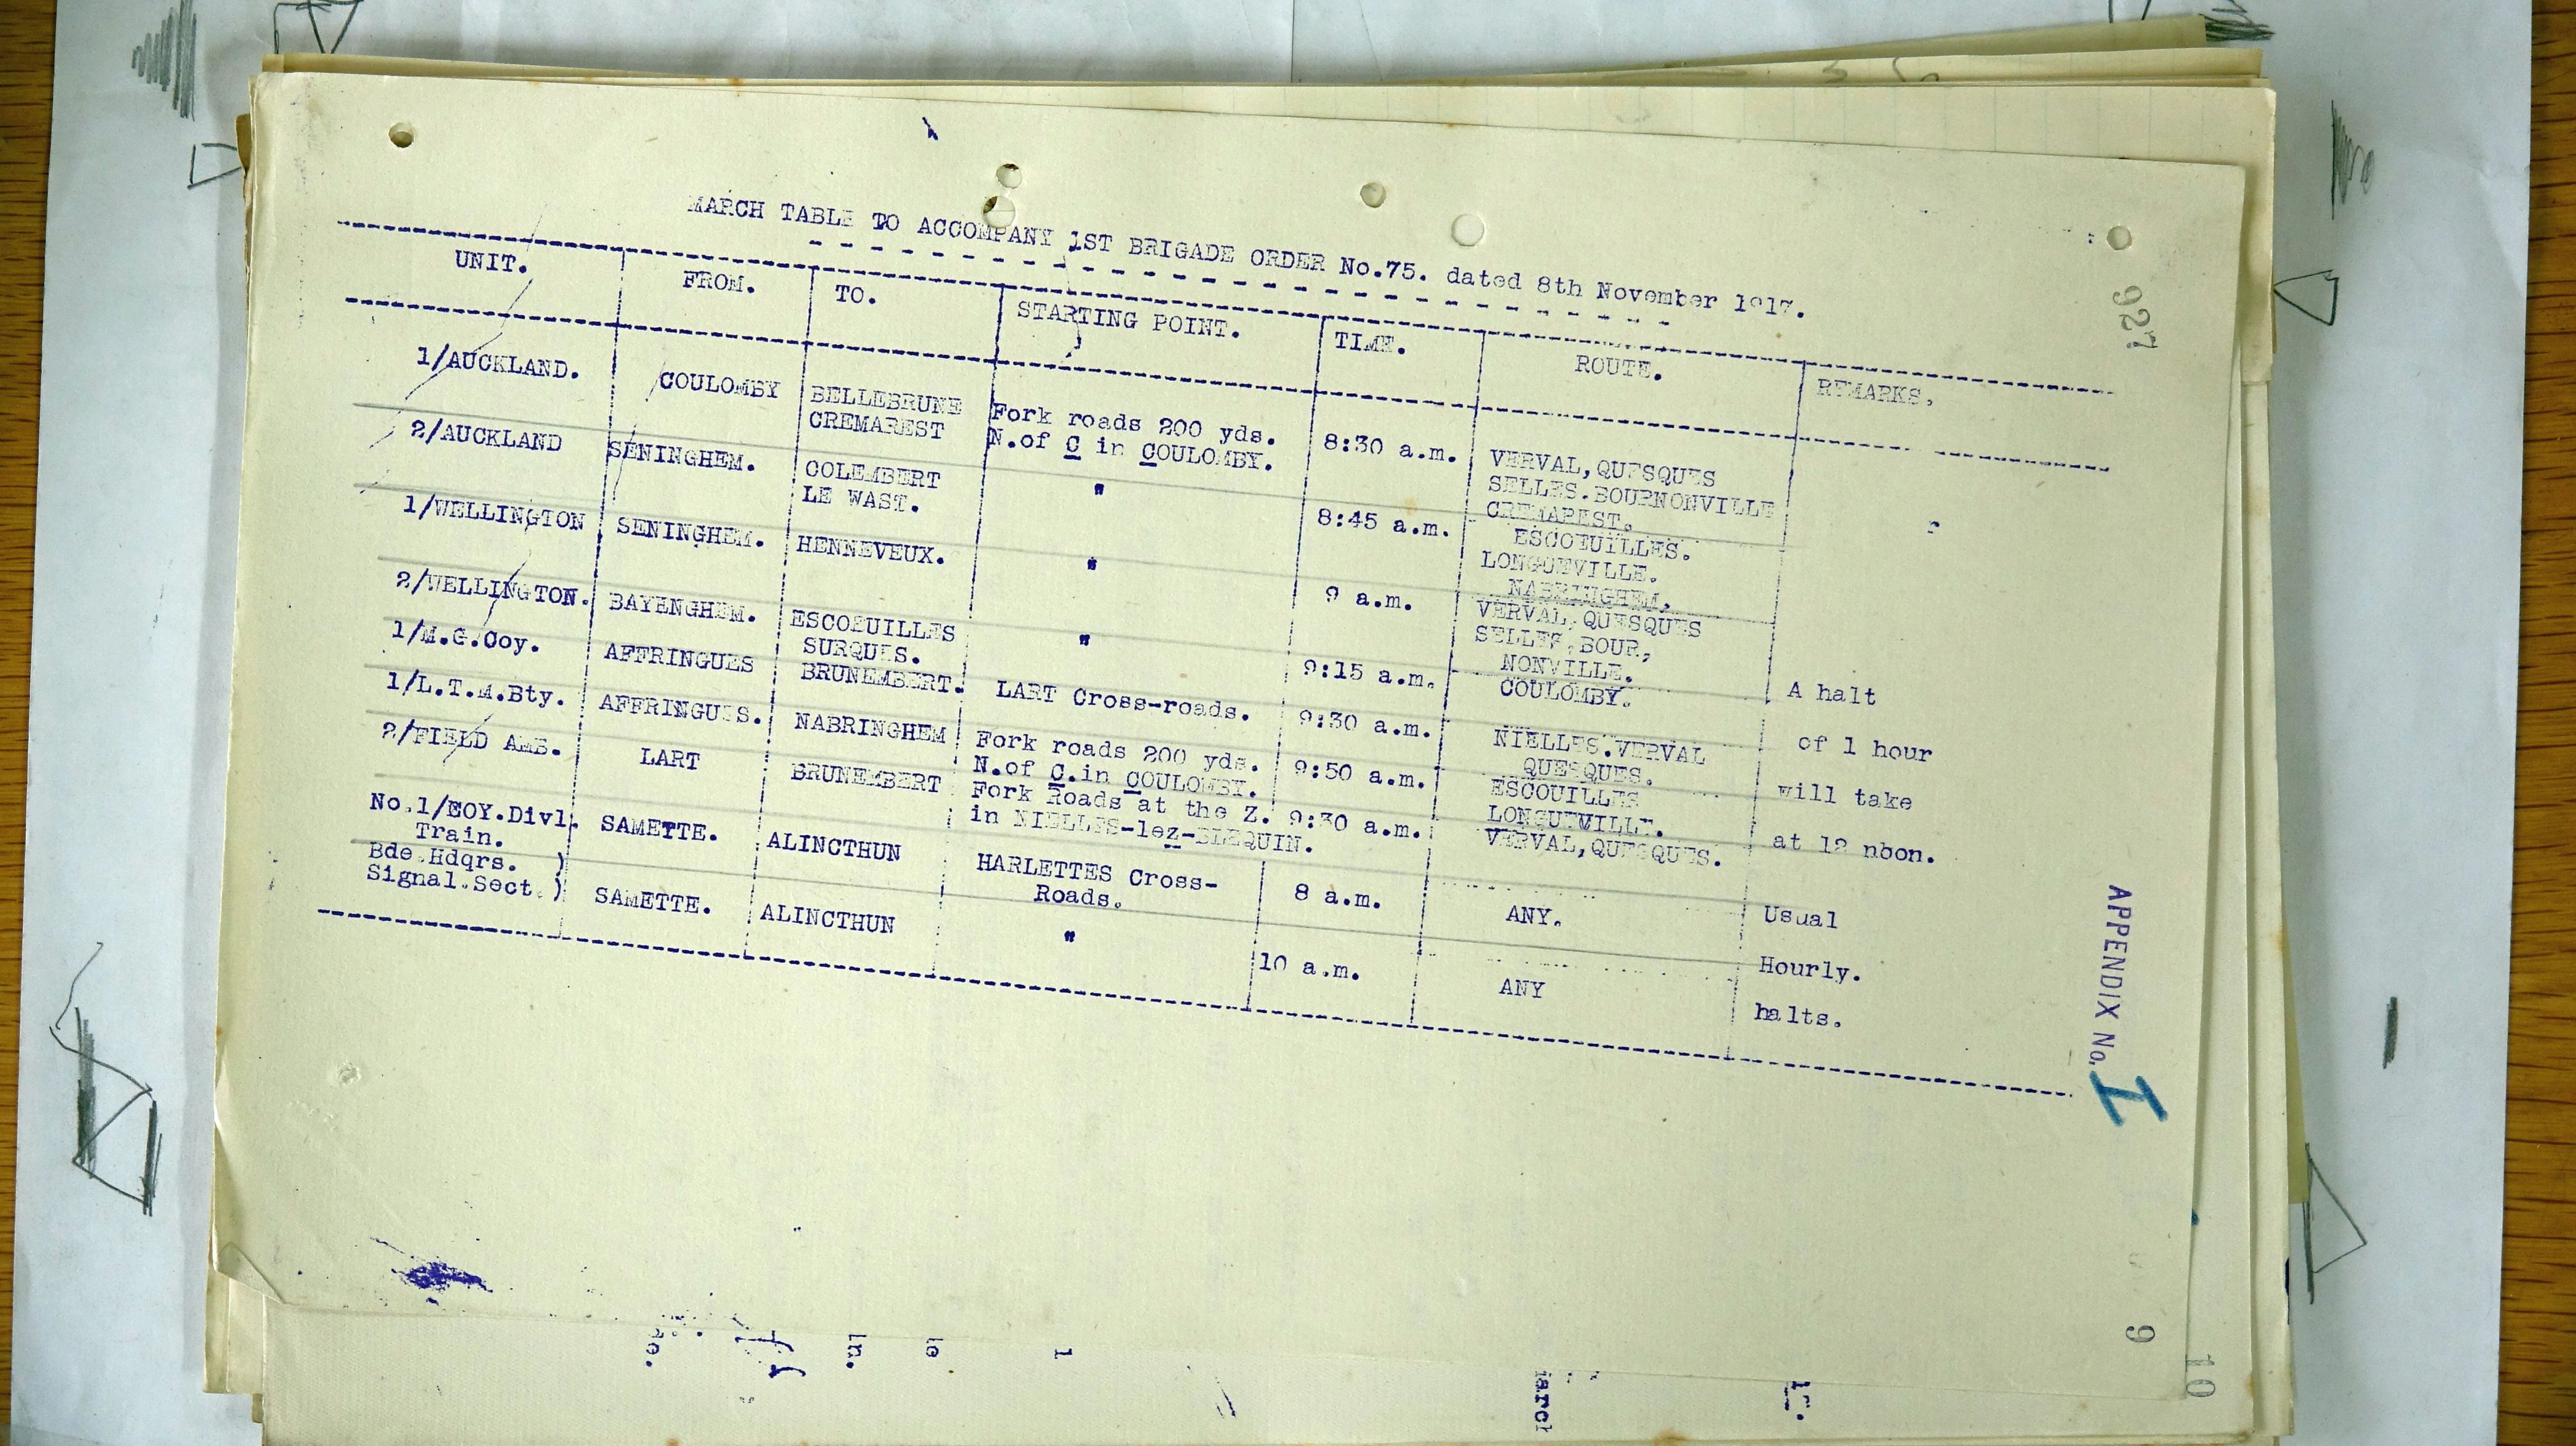 MARCH TABLE TO ACCOMPANY 1ST BRIGADE ORDER No.75. dated 8th November 1917.
UNIT. FROM. TO. STARTING POINT. TIME. ROUTE. REMARKS.
1/AUCKLAND. COULOMBY BELLEBRUNE Fork roads 200 yds. 8:30 a.m. VERVAL,QUESQUES
CREMAREST N.of C in COULOMBY. SELLES.BOURNONVILLE
CREMAREST.
2/AUCKLAND SENINGHEM. COLEMBERT " 8:45 a.m. ESCOEUILLES.
LE WAST. LONGUEVILLE.
NABRINGHEM.
1/WELLINGTON SENINGHEM. HENNEVEUX. " 9 a.m. VERVAL,QUESQUES
SELLES,BOUR,
NONVILLE.
2/WELLINGTON. BAYENGHEM. ESCOEUILLES " 9:15 a.m. COULOMBY. A halt
SURQUES.
1/M.G.Coy. AFFRINGUES BRUNEMBERT. LART Cross-roads. 9:30 a.m. NIELLES.VERVAL of 1 hour
QUESQUES.
1/L.T.M.Bty. AFFRINGUES. NABRINGHEM Fork roads 200 yds. 9:50 a.m. ESCOUILLES will take
N.of C.in COULOMBY. LONGUEVILLE.
2/FIELD AMB. LART BRUNEMBERT Fork Roads at the Z. 9:30 a.m. VERVAL,QUESQUES. at 12 nbon.
in NIELLES-lez-BLEQUIN.
No.1/EOY.Divl. SAMETTE. ALINCTHUN HARLETTES Cross- 8 a.m. ANY. Usual
Train. Roads.
Bde.Hdqrs. ) SAMETTE. ALINCTHUN " 10 a.m. ANY Hourly.
Signal.Sect.) halts.
927
APPENDIX No. I
9
10